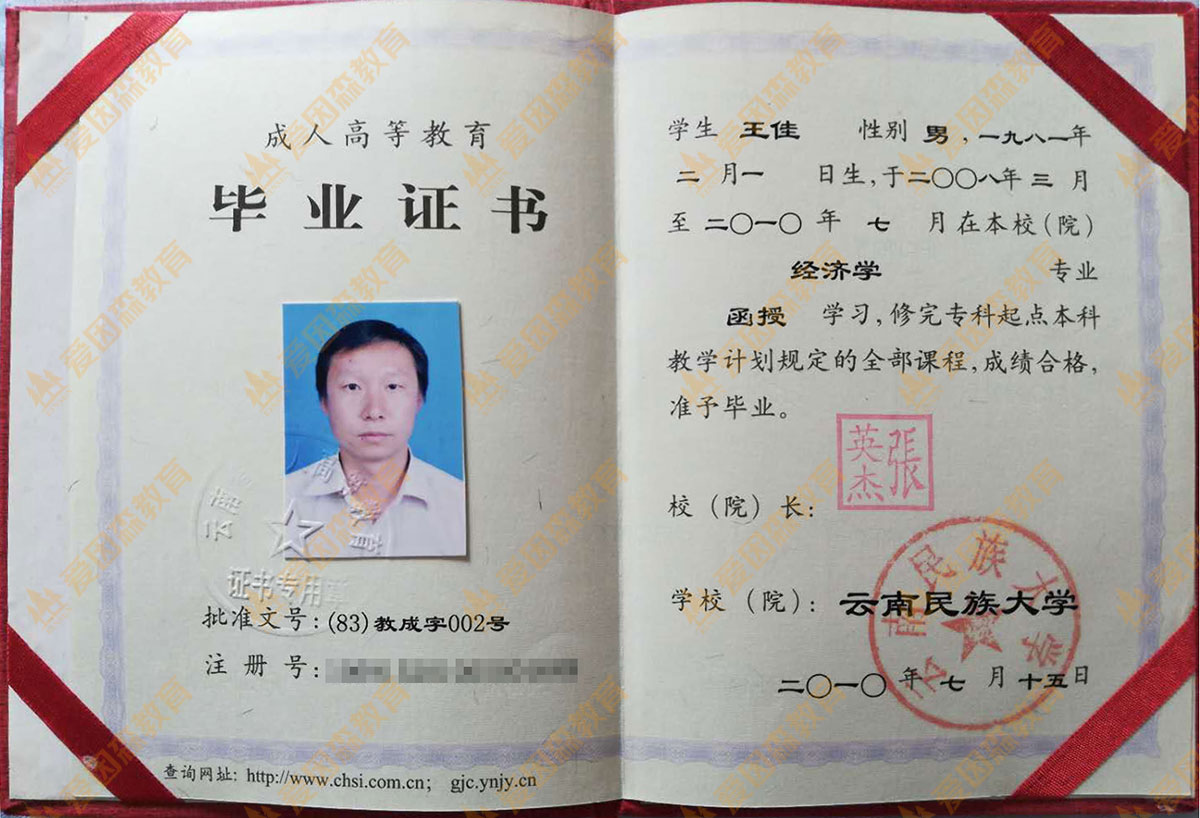 成人高等教育
毕业证书
云南
高等教育
证书专用章
批准文号：(83)教成字002号
注册号：
查询网址：http://www.chsi.com.cn； gjc.ynjy.cn
学生 王佳 性别 男，一九八一年
二 月一 日生，于二〇〇八年 三 月
至 二〇一〇 年 七 月在本校（院）
经济学 专业
函授 学习，修完专科起点本科
教学计划规定的全部课程，成绩合格，
准予毕业。
张英杰
校（院）长：
学校（院）：云南民族大学
云南民族大学
二〇一〇 年 七 月 十五日
爱因森教育